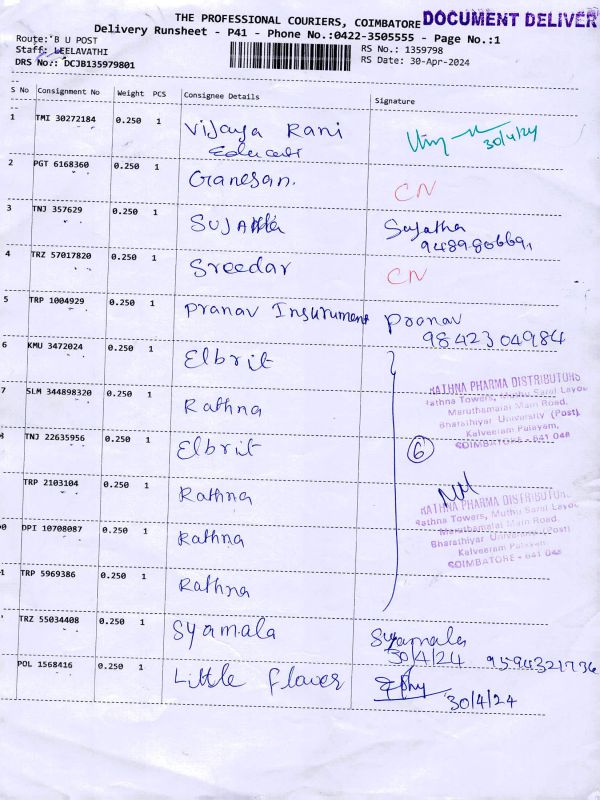 THE PROFESSIONAL COURIERS, COIMBATORE DOCUMENT DELIVER
Delivery Runsheet - P41 - Phone No.:0422-3505555 - Page No.:1
Route: B U POST
RS No.: 1359798
Staff: LEELAVATHI
RS Date: 30-Apr-2024
DRS No.: DCJB135979801
S No Consignment No Weight PCS Consignee Details Signature
1 TMI 30272184 0.250 1 Vijaya Rani
30/4/24
2 PGT 6168360 0.250 1 Ganesan. CN
3 TNJ 357629 0.250 1 SUJAtha Sujatha
9489806691
4 TRZ 57017820 0.250 1 Sreedar CN
5 TRP 1004929 0.250 1 Pranav Insurument Pranav
9842304984
6 KMU 3472024 0.250 1 Elbrit
RATHNA PHARMA DISTRIBUTORS
7 SLM 344898320 0.250 1 Rathna
Rathna Towers, Muthu Saml Layou
Maruthamalai Main Road,
Bharathiyar University (Post)
Kalveeram Palayam,
COIMBATORE - 641 046
TNJ 22635956 0.250 1 Elbrit
6
TRP 2103104 0.250 1 Rathna
RATHNA PHARMA DISTRIBUTOR
Rathna Towers, Muthu Saml Layou
Maruthamalai Main Road,
Bharathiyar University (Post)
Kalveeram Palayam
COIMBATORE - 641 046
0 DPI 10708087 0.250 1 Rathna
1 TRP 5969386 0.250 1 Rathna
TRZ 55034408 0.250 1 Syamala Syamala
30/4/24 9594321736
POL 1568416 0.250 1 Little flower
30/4/24